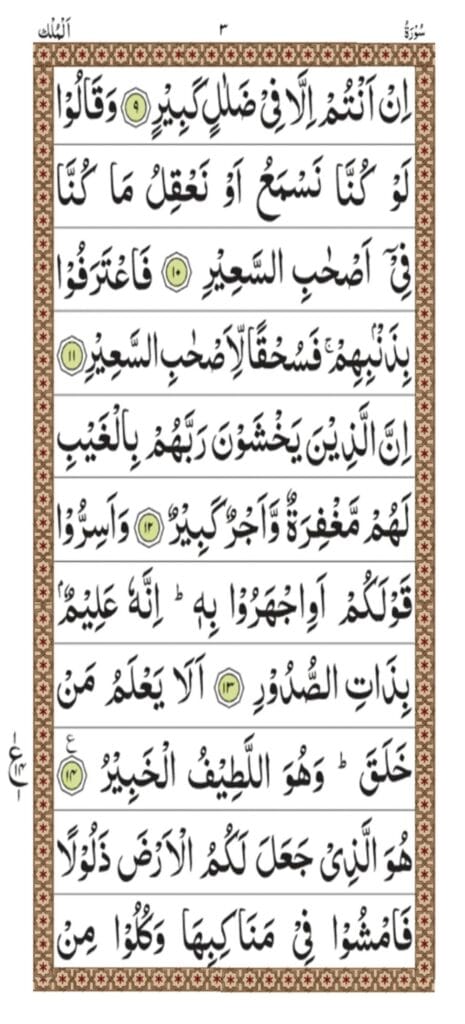 سُوْرَةُ ٣ اَلْمُلْك
اِنْ اَنْتُمْ اِلَّا فِیْ ضَلٰلٍ كَبِیْرٍ ۹ وَ قَالُوْا
لَوْ كُنَّا نَسْمَعُ اَوْ نَعْقِلُ مَا كُنَّا
فِیْۤ اَصْحٰبِ السَّعِیْرِ ۱۰ فَاعْتَرَفُوْا
بِذَنْۢبِهِمْ ۚ فَسُحْقًا لِّاَصْحٰبِ السَّعِیْرِ ۱۱
اِنَّ الَّذِیْنَ یَخْشَوْنَ رَبَّهُمْ بِالْغَیْبِ
لَهُمْ مَّغْفِرَةٌ وَّ اَجْرٌ كَبِیْرٌ ۱۲ وَ اَسِرُّوْا
قَوْلَكُمْ اَوِ اجْهَرُوْا بِهٖ ؕ اِنَّهٗ عَلِیْمٌۢ
بِذَاتِ الصُّدُوْرِ ۱۳ اَلَا یَعْلَمُ مَنْ
خَلَقَ ؕ وَ هُوَ اللَّطِیْفُ الْخَبِیْرُ ۱۴ ع
ع ۱ ۱۴ ۱
هُوَ الَّذِیْ جَعَلَ لَكُمُ الْاَرْضَ ذَلُوْلًا
فَامْشُوْا فِیْ مَنَاكِبِهَا وَ كُلُوْا مِنْ